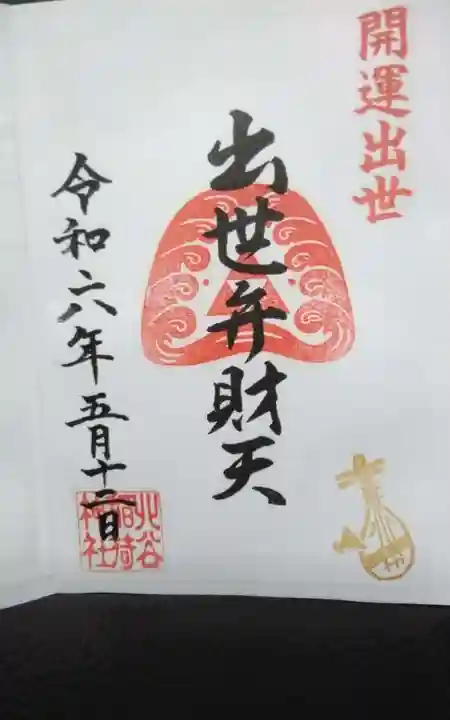 開運出世
出世弁財天
令和六年五月十二日
北谷
神社